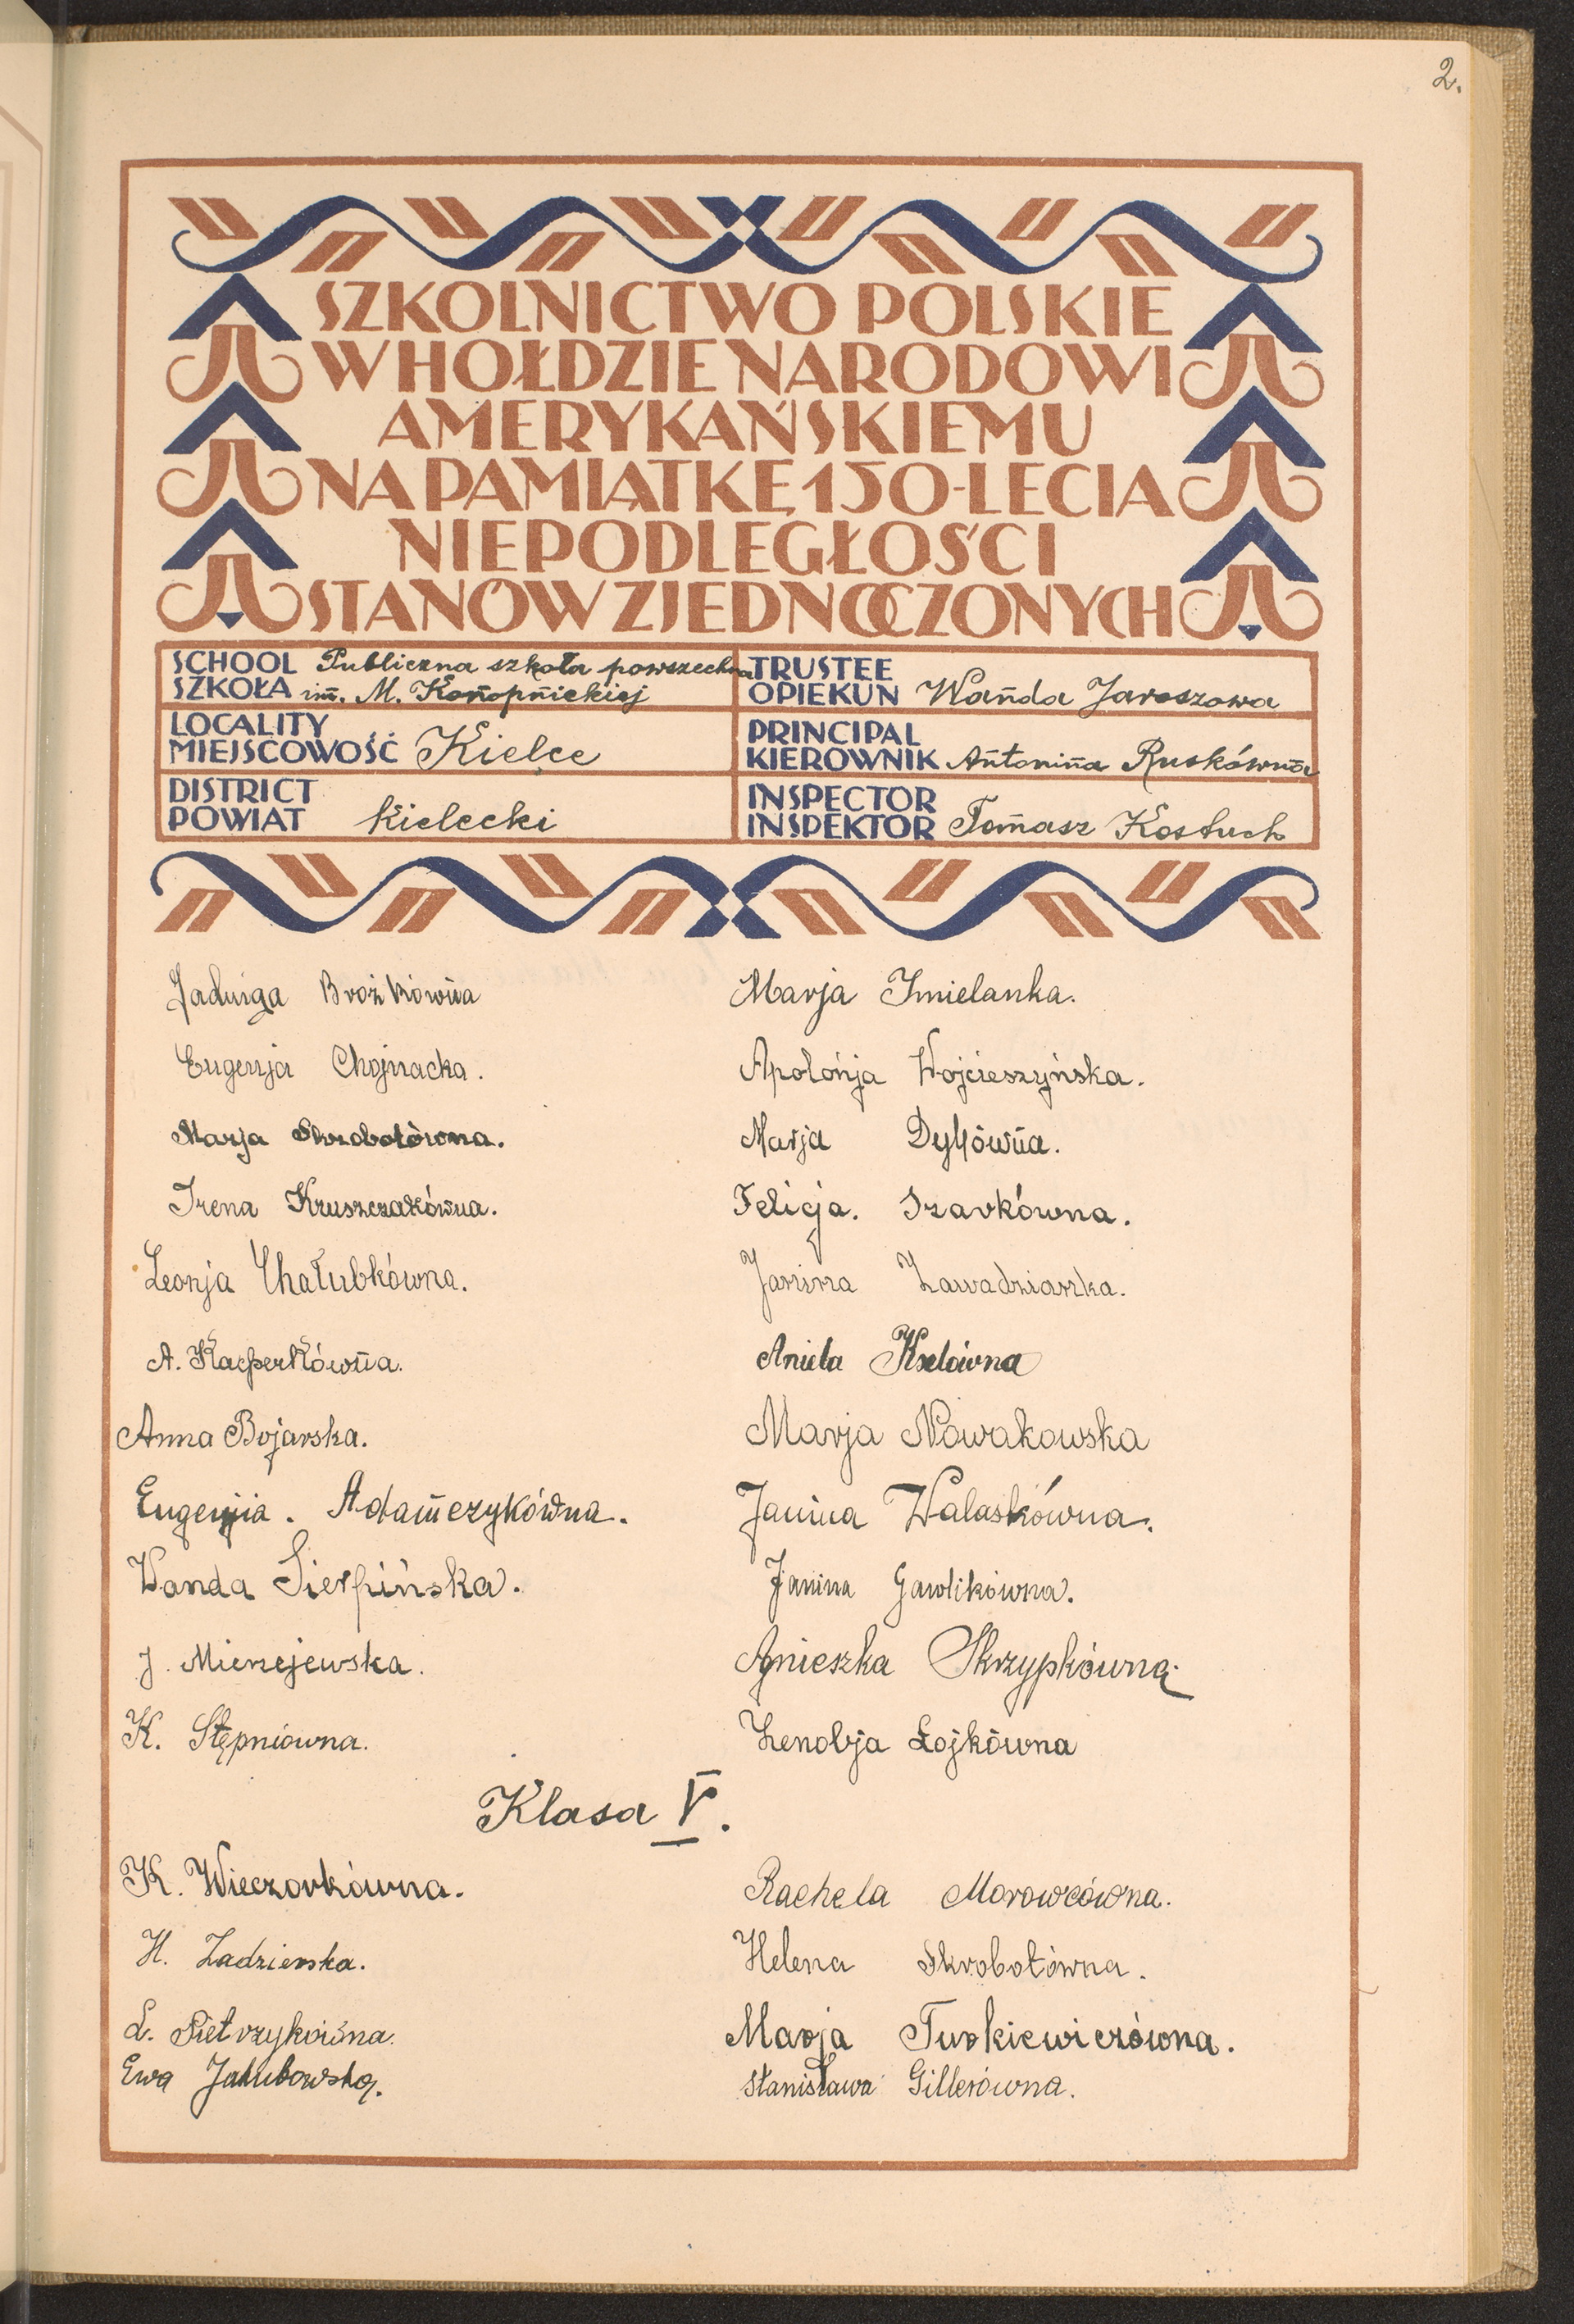 2.
SZKOLNICTWO POLSKIE
W HOŁDZIE NARODOWI
AMERYKAŃSKIEMU
NA PAMIĄTKĘ 150-LECIA
NIEPODLEGŁOŚCI
STANÓW ZJEDNOCZONYCH
SCHOOL Publiczna szkoła powszechna
SZKOŁA im. M. Konopnickiej
TRUSTEE
OPIEKUN Wanda Jaroszowa
LOCALITY
MIEJSCOWOŚĆ Kielce
PRINCIPAL
KIEROWNIK Antonina Ruskówna
DISTRICT
POWIAT Kielecki
INSPECTOR
INSPEKTOR Tomasz Kostuch
Jadwiga Brożkówna
Marja Imielanka.
Eugenja Chojnacka.
Apolonja Wojcieszyńska.
Marja Skrobotówna.
Marja Dylówna.
Irena Kruszczakówna.
Felicja. Szarkówna.
Leonja Chałubkówna.
Janina Zawadzianka.
A. Kacperkówna.
Aniela Kselówna
Anna Bojarska.
Marja Nowakowska
Eugenja. Adamczykówna.
Janina Walaskówna.
Wanda Sierpińska.
Janina Gawlikówna.
J. Mierzejewska.
Agnieszka Skrzypkówna.
K. Stępniówna.
Zenobja Łojkówna
Klasa V.
K. Wieczorkówna.
Rachela Morowcówna.
H. Zadzierska.
Helena Skrobotówna.
L. Pietrzykówna.
Marja Turkiewiczówna.
Ewa Jakubowska.
Stanisława Gillerówna.